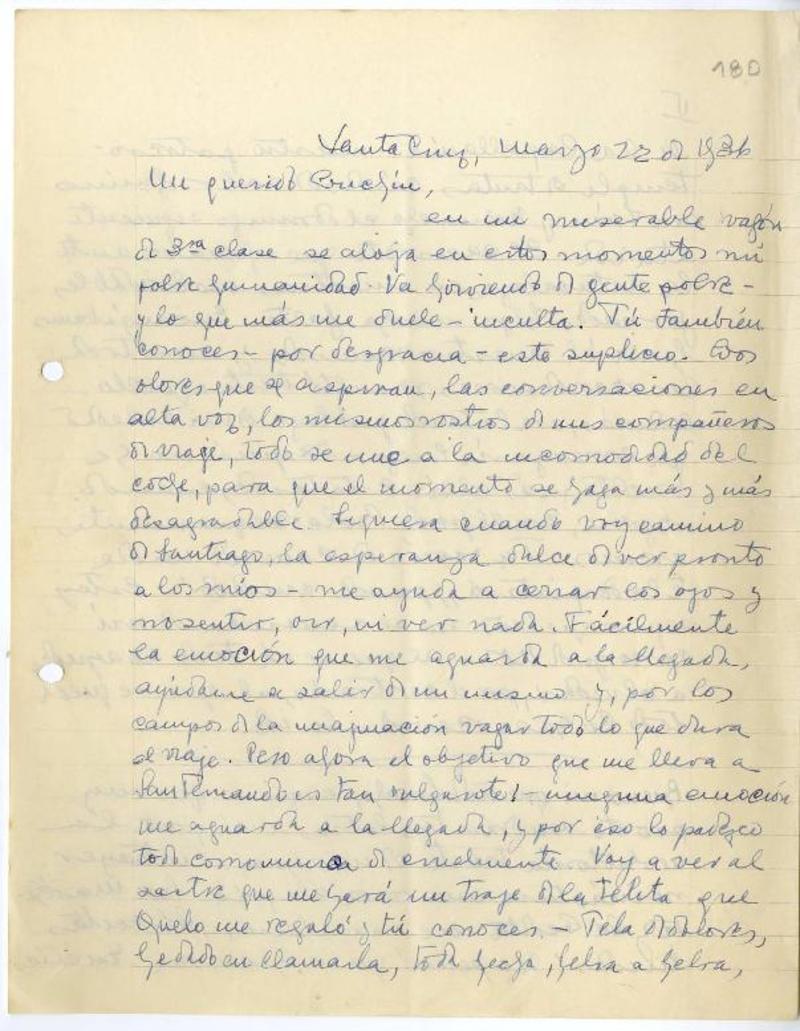 180
Santa Cruz, Marzo 22 de 1936
Mi querido Conchín,
en un miserable vagón
de 3ra clase se aloja en estos momentos mi
pobre humanidad. Va hirviendo de gente pobre -
y lo que más me duele - inculta. Tú también
conoces - por desgracia - este suplicio. Los
olores que se aspiran, las conversaciones en
alta voz, los mismos rostros de mis compañeros
de viaje, todo se une a la incomodidad del
coche, para que el momento se haga más y más
desagradable. Siquiera cuando voy camino
de Santiago, la esperanza dulce de ver pronto
a los míos - me ayuda a cerrar los ojos y
no sentir, oir, ni ver nada. Fácilmente
la emoción que me aguarda a la llegada,
ayúdame a salir de mi mismo y, por los
campos de la imaginación vagar todo lo que dura
el viaje. Pero ahora el objetivo que me lleva a
San Fernando es tan vulgarote! - ninguna emoción
me aguarda a la llegada, y por eso lo padezco
todo como nunca de cruelmente. Voy a ver al
sastre que me hará un traje de la telita que
Quelo me regaló y tú conoces - Tela de dolores,
he dado en llamarla, toda hecha, hebra a hebra,